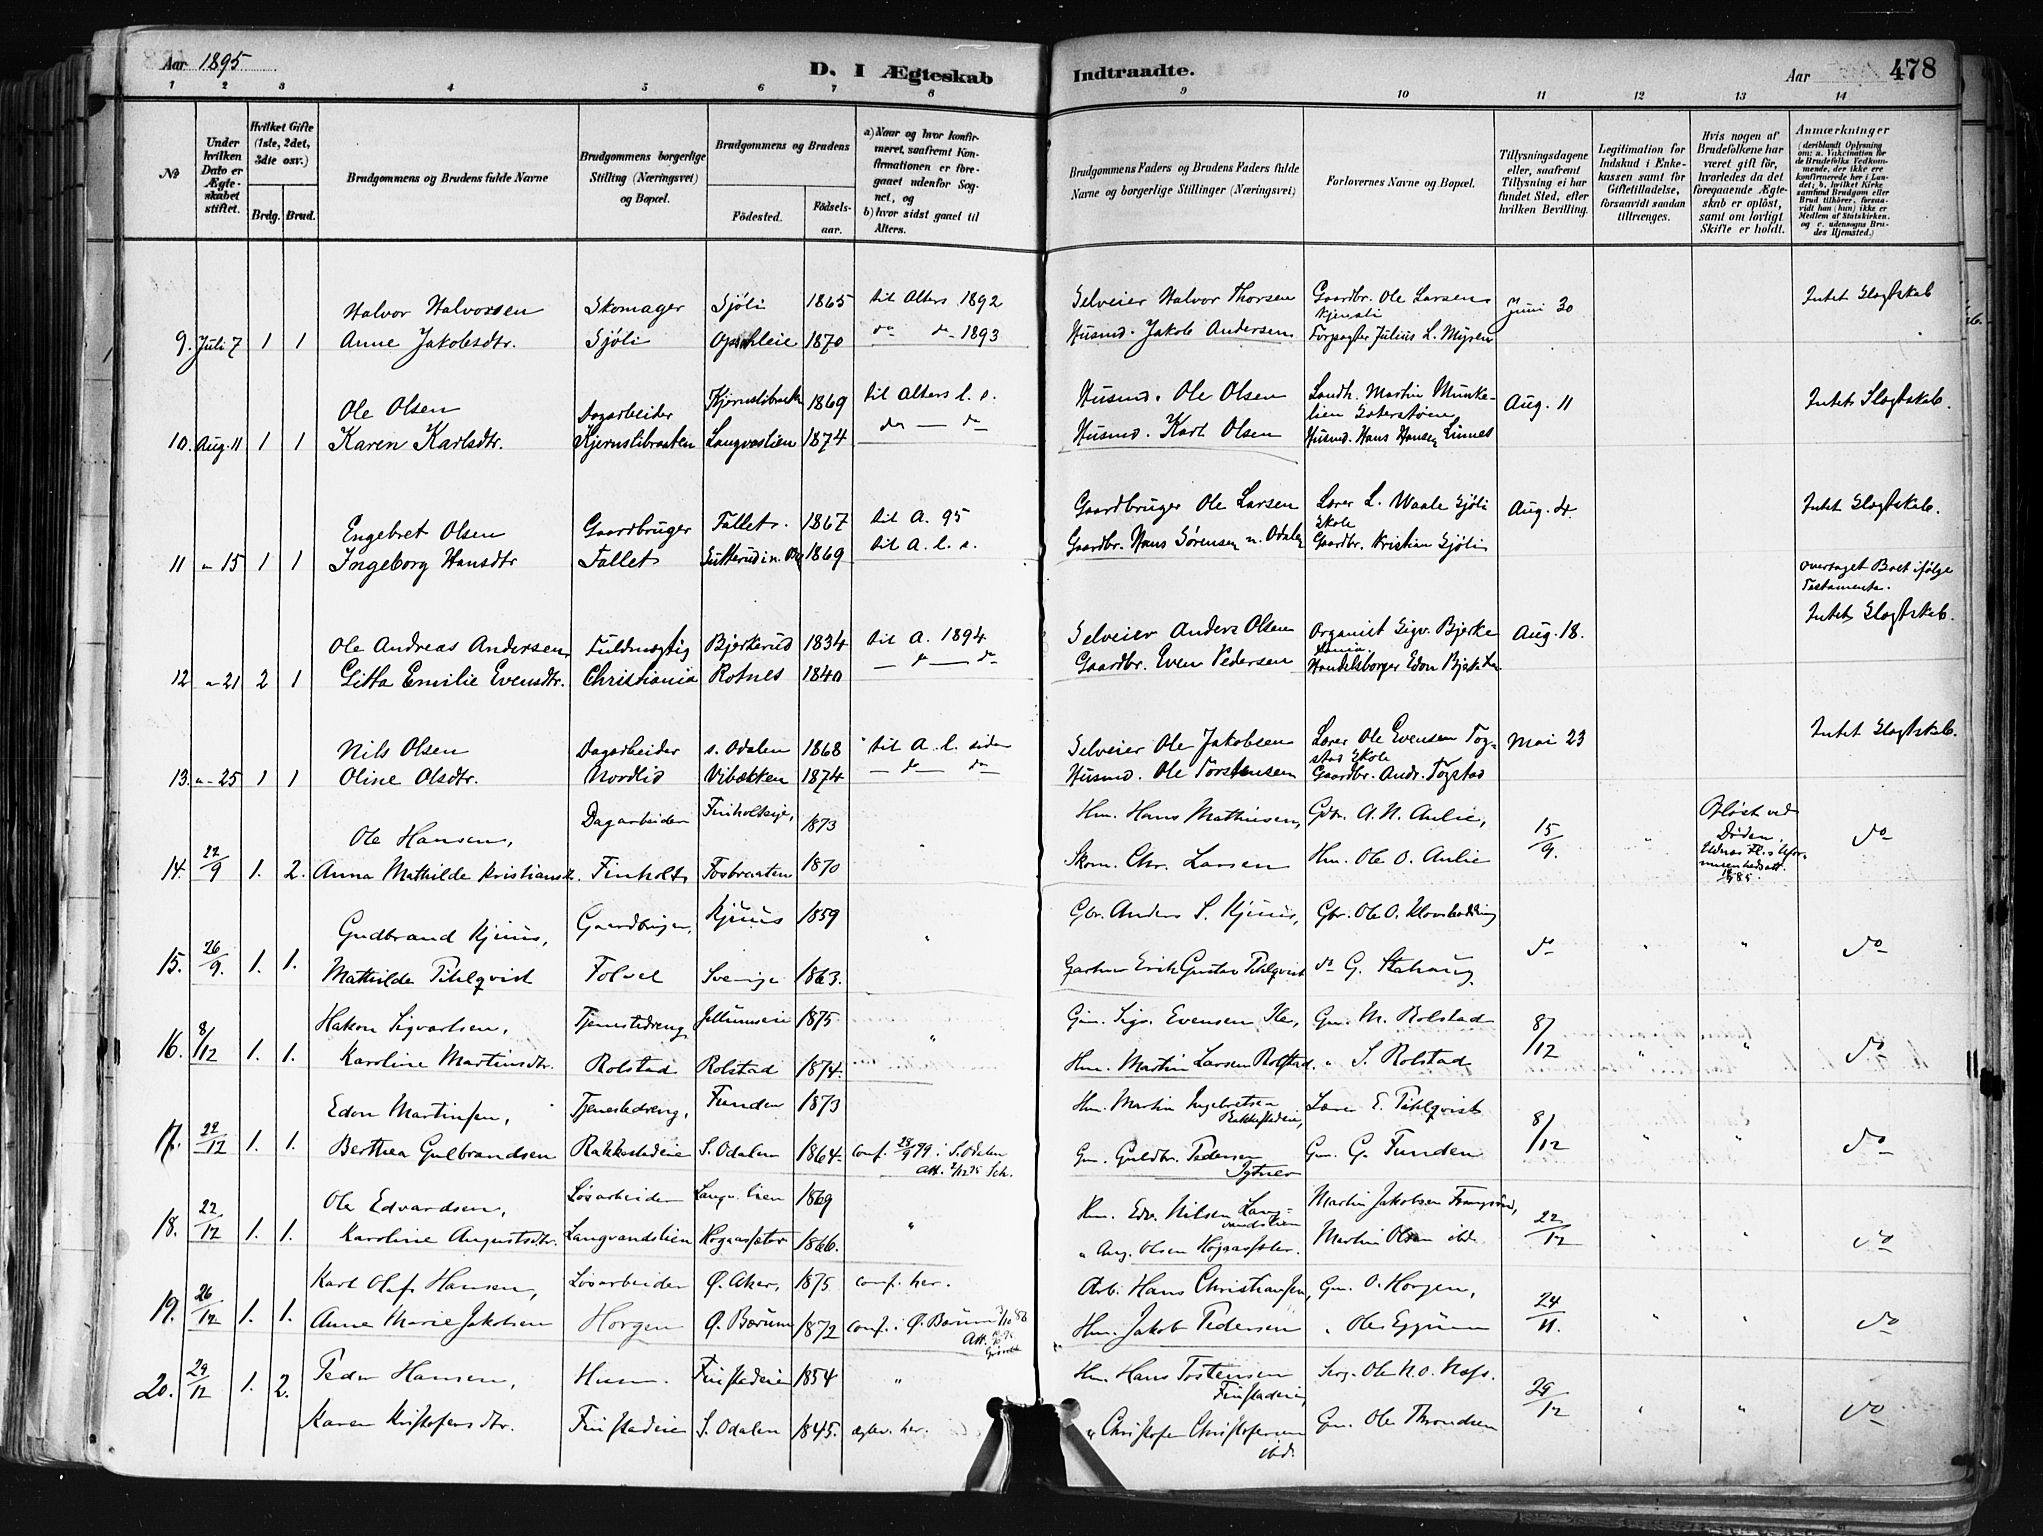 Aar 1895
D. I Ægteskab
Indtraadte.
Aar
478
1 2 3 4 5 6 7 8 9 10 11 12 13 14
No
Under hvilken Dato er Ægteskabet stiftet.
Hvilket Gifte (1ste, 2det, 3die osv.)
Brdg. Brud.
Brudgommens og Brudens fulde Navne
Brudgommens borgerlige Stilling (Næringsvei) og Bopæl.
Brudgommens og Brudens
Fødested.
Fødselsaar.
a) Naar og hvor konfirmeret, saafremt Konfirmationen er foregaaet udenfor Sognet, og
b) hvor sidst gaaet til Alters.
Brudgommens Faders og Brudens Faders fulde Navne og borgerlige Stillinger (Næringsvei)
Forlovernes Navne og Bopæl.
Tillysningsdagene eller, saafremt Tillysning ei har fundet Sted, efter hvilken Bevilling.
Legitimation for Indskud i Enkekassen samt for Giftetilladelse, forsaavidt saadan tiltrænges.
Hvis nogen af Brudefolkene har været gift før, hvorledes da det foregaaende Ægteskab er opløst, samt om lovligt Skifte er holdt.
Anmærkninger (deriblandt Oplysning om: a. Vakcination for de Brudefolks Vedkommende, der ikke ere konfirmerede her i Landet; b. hvilket Kirkesamfund Brudgom eller Brud tilhører, forsaavidt han (hun) ikke er Medlem af Statskirken, og c. udensogns Brudes Hjemsted.)
Halvor Halvorsen Skomager Sjøli 1865 til Alters 1892 Selveier Halvor Thorsen Gaardbr. Ole Larsen Juni 30 Intet Slagtskab
9. Juli 7 1 1 Anne Jakobsdtr. Sjøli 1870 do do 1893 Husmd. Jakob Andersen Forpagter Julius L. Myren
Ole Olsen Dagarbeider 1869 til Alters l. s. Husmd. Ole Olsen Landh. Martin Aug. 11 Intet Slagtskab.
10. Aug. 11 1 1 Karen Karlsdtr. Kjernslibraaten Langvestien 1874 do do Husmd. Karl Olsen Husmd. Hans Hansen Linnes
Engebret Olsen Gaardbruger Fallet. 1867 til A. 95 Gaardbruger Ole Larsen Lærer L. Waale Sjøli Skole Aug. 4. Intet Slagtskab.
11 " 15 1 1 Ingeborg Hansdtr Fallet 1869 til A. l. s. Gaardbr. Hans Sørensen n. Odalen Gaardbr. Kristian Sjøli
overtaget Boet ifølge Testamente.
Ole Andreas Andersen Fuldmægtig Bjerkerud 1834 til A. 1894 Selveier Anders Olsen Organist Sigv. Bjerke Aug. 18. Intet Slagtskab.
12 " 21 2 1 Gitta Emilie Evensdtr. Christiania Rotnes 1840 do do Gaardbr. Even Pedersen Handelsborger Edon
Nils Olsen Dagarbeider s. Odalen 1868 til A. l. siden Selveier Ole Jakobsen Lærer Ole Evensen Fogstad Skole Mai 23 Intet Slagtskab.
13. " 25 1 1 Oline Olsdtr. Nordlid Vibækken 1874 do do Husmd. Ole Torstensen Gaardbr. Andr. Fogstad
Ole Hansen, Dagarbeider 1873 Hm. Hans Mathiesen, Gdbr. A. N. Aulie, 15/9. Opløst ved Døden.
14. 22/9 1. 2. Anna Mathilde Kristiansd. Finholt Fosbraaten 1870 Skom. Chr. Larsen Hm. Ole O. Aulie do
Gudbrand Kjuus, Gaardbruger, Kjuus 1859 Gbr. Anders S. Kjuus, Gbr. Ole O.
15. 26/9. 1. 1. Mathilde Pihlqvist Folvel Sverige 1863. Gartner Erik Gustav Pihlqvist do G. do " " do
Hakon Sigvartsen, Tjenestedreng 1875 Gm. Sigv. Evensen Gm. M. Rolstad 8/12
16. 8/12 1. 1. Karoline Martinsdtr. Rolstad Rolstad 1874. Hm. Martin Larsen Rolstad. " S. Rolstad " " do
Edon Martinsen, Tjenestedreng, Funden 1873 Hm. Martin Ingebretsen Lærer E. Pihlqvist 8/12
17. 22/12 1. 1. Berthea Gulbrandsen Rakkestadeie S. Odalen 1864. conf. 28/9 79 i S. Odalen Gm. Guldbr. Pedersen Gm. G. Funden do
Ole Edvardsen, Løsarbeider 1869 Hm. Edv. Nilsen Langvandslien Martin Jakobsen 22/12
18. 22/12 1. 1. Karoline Augustsdtr. Langvandslien 1866. " " Aug. Olsen Martin Olsen ibd. do
Karl Olaf Hansen, Løsarbeider Ø. Aker, 1875 conf. her. Arb. Hans Christiansen, Gm. O. Horgen, 24/11.
19. 26/12 1. 1. Anne Marie Jakobsen Horgen Ø. Bærum 1872 conf. i Ø. Bærum Hm. Jakob Pedersen " Ole Eggum do
Peder Hansen, Husm. Finstadeie 1854 " Hm. Hans Tostensen Finstadeie, Serg. Ole N. O. Næss. 29/12
20. 29/12 1. 2. Karen Kristofersdtr. Finstadeie S. Odalen 1845. her. " Christofer Christofersen ibd. Gm. Ole Throndsen " " do